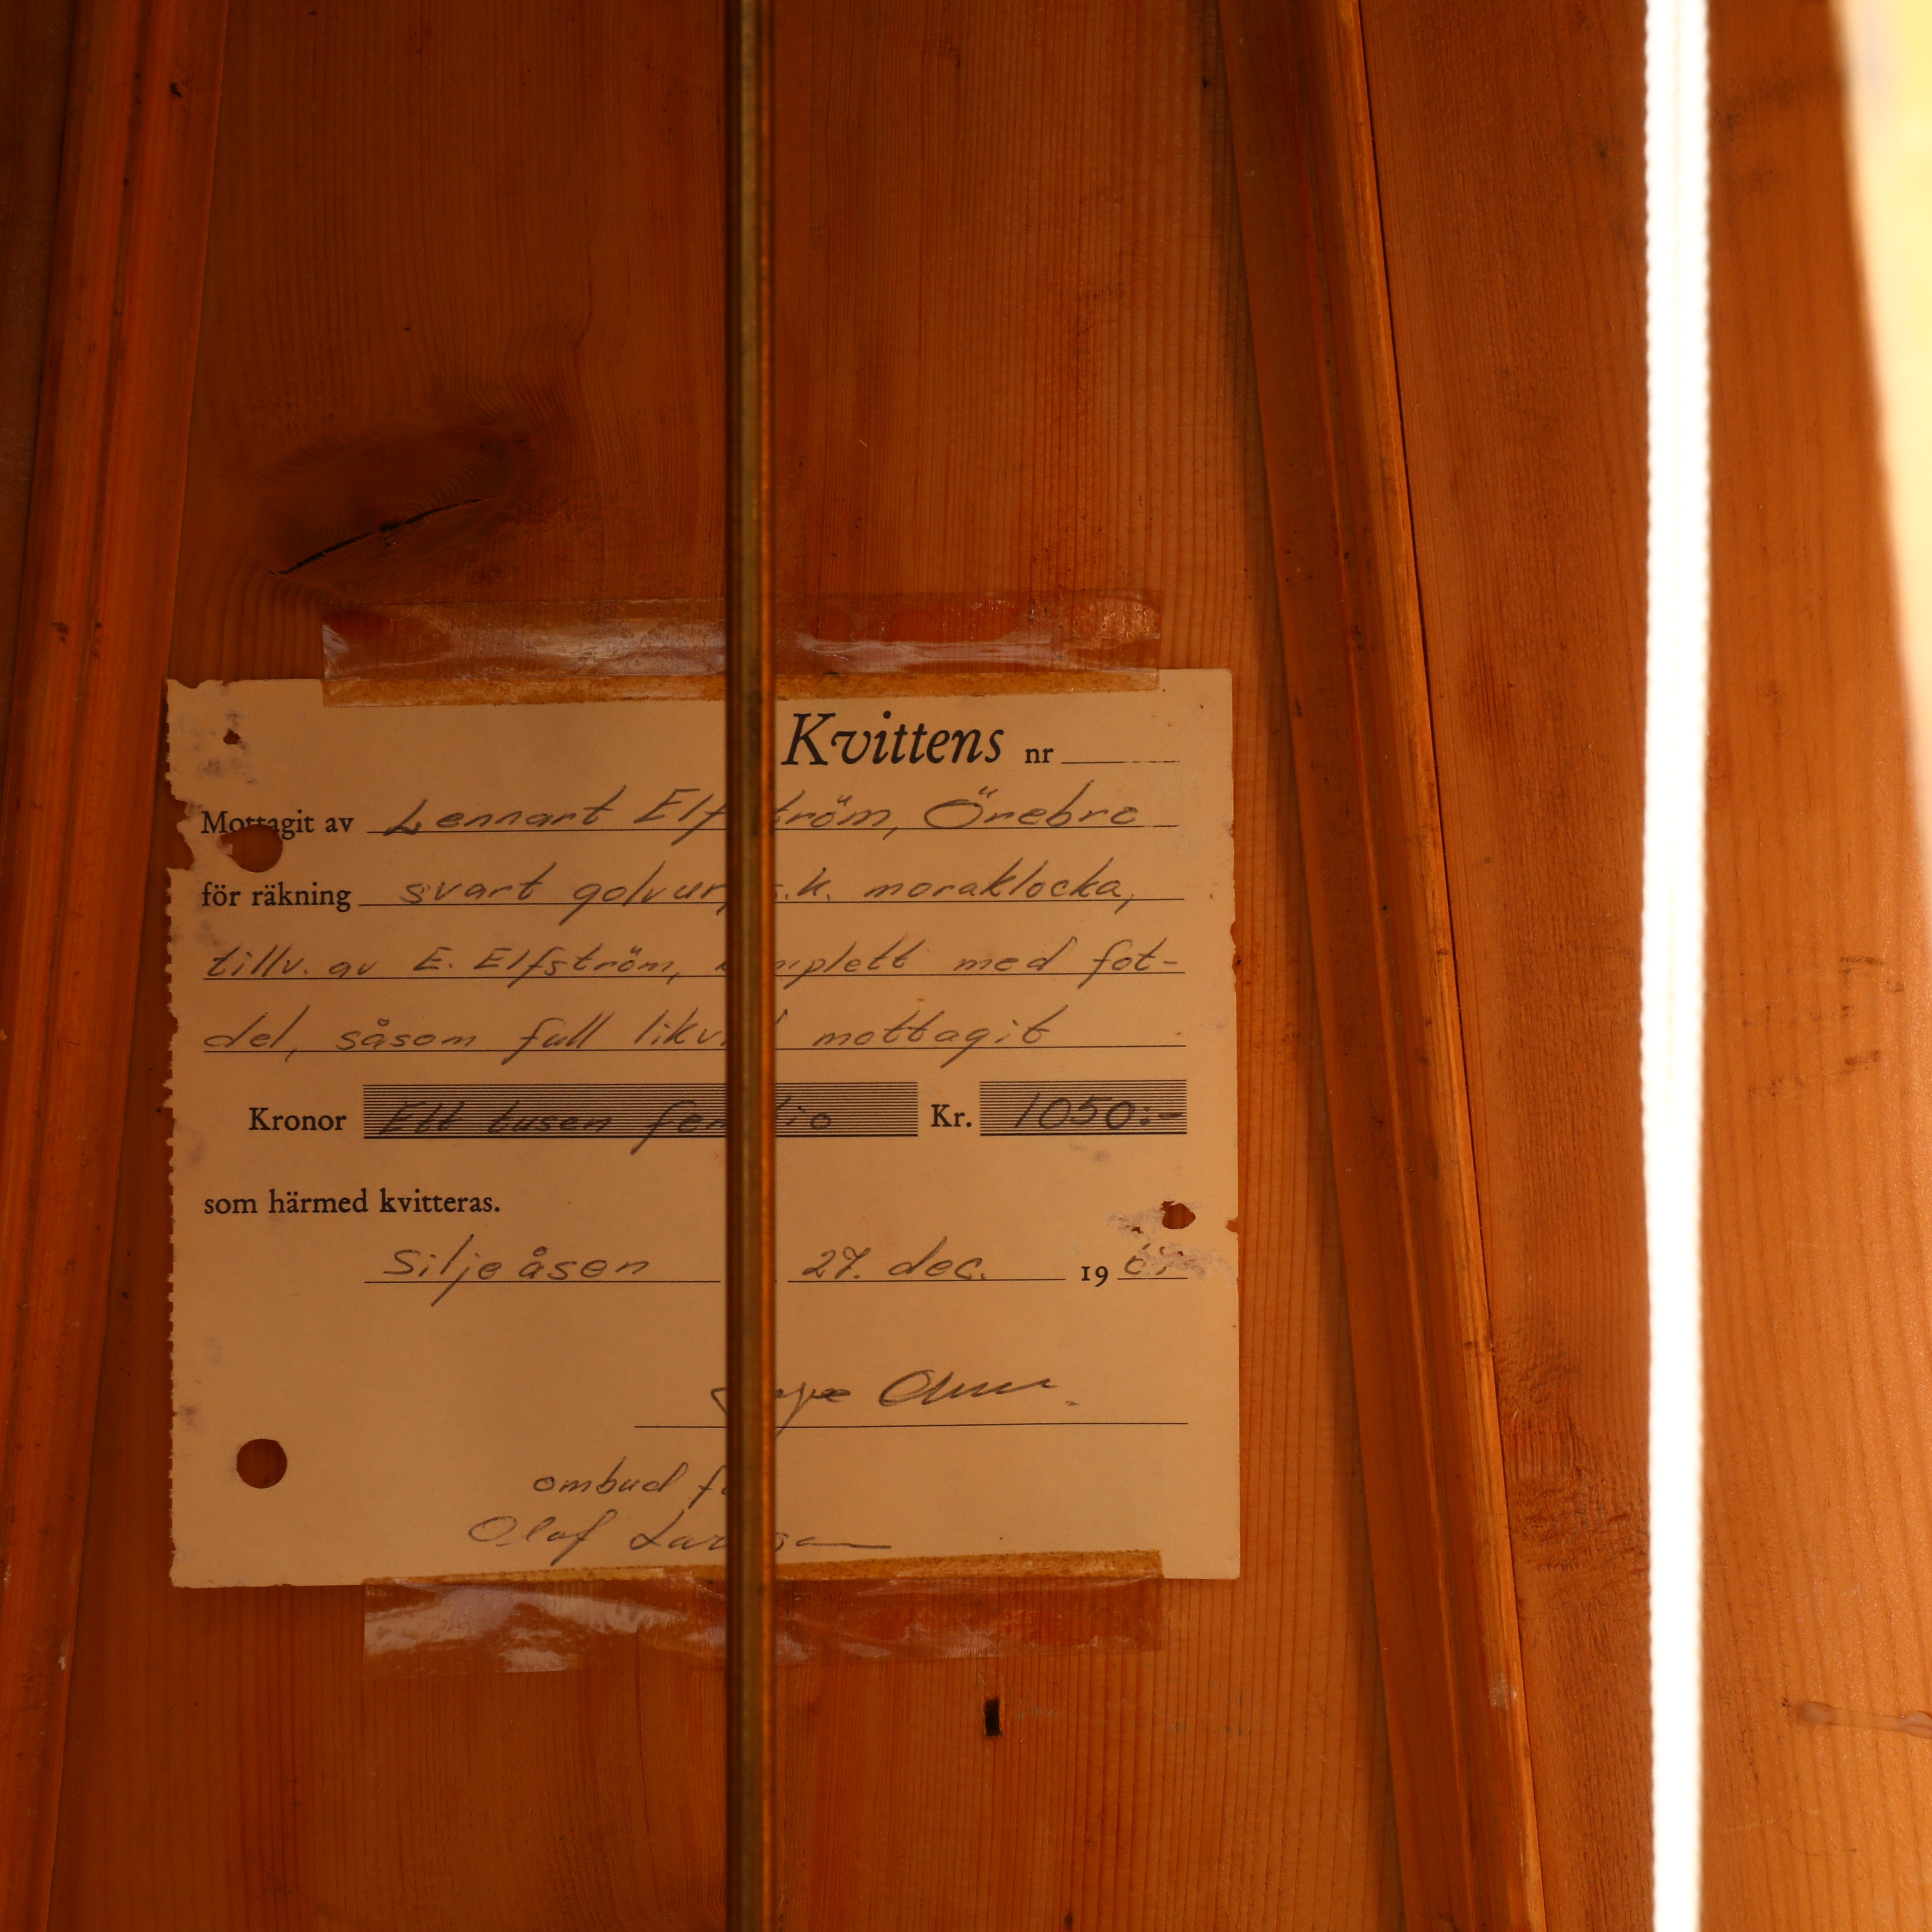 Kvittens nr
Mottagit av Lennart Elfström, Örebro
för räkning svart golvur, s.k. moraklocka,
tillv. av E. Elfström, komplett med fot-
del, såsom full likvid mottagit
Kronor Ett tusen femtio Kr. 1050:-
som härmed kvitteras.
Siljeåsen 27. dec. 19
ombud för
Olof Larsson